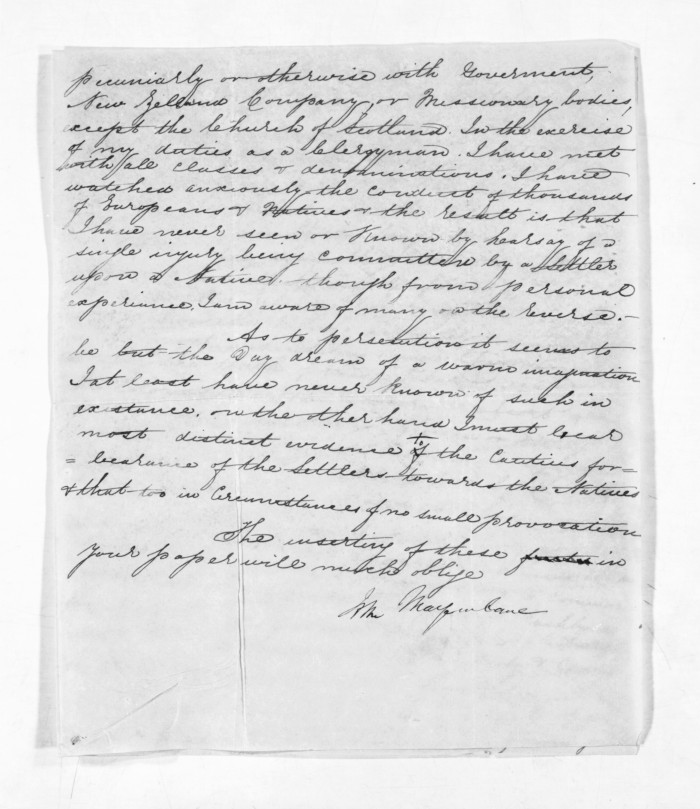 pecuniarly or otherwise with Goverment,
New Zelland Company, or Missionary bodies,
except the Church of Scotland. In the exercise
of my duties as a Clergyman. I have met
with all classes & denominations. I have
watched anxiously the conduct of thousands
of Europeans & Natives & the result is that
I have never seen or known by hearsay of a
single injury being committed by a Settler
upon a Native. though from personal
experience, I am aware of many on the Reverse.-
As to persecution it seems to
be but the Day dream of a warm imagination
I at least have never known of such in
existance. on the other hand I must bear
most distinct evidence to the Cautius for=
=bearance of the Settlers towards the Natives
& that too in Circumstances of no small provocation
The inserting of these in
your paper will much oblige
John Macfarlane